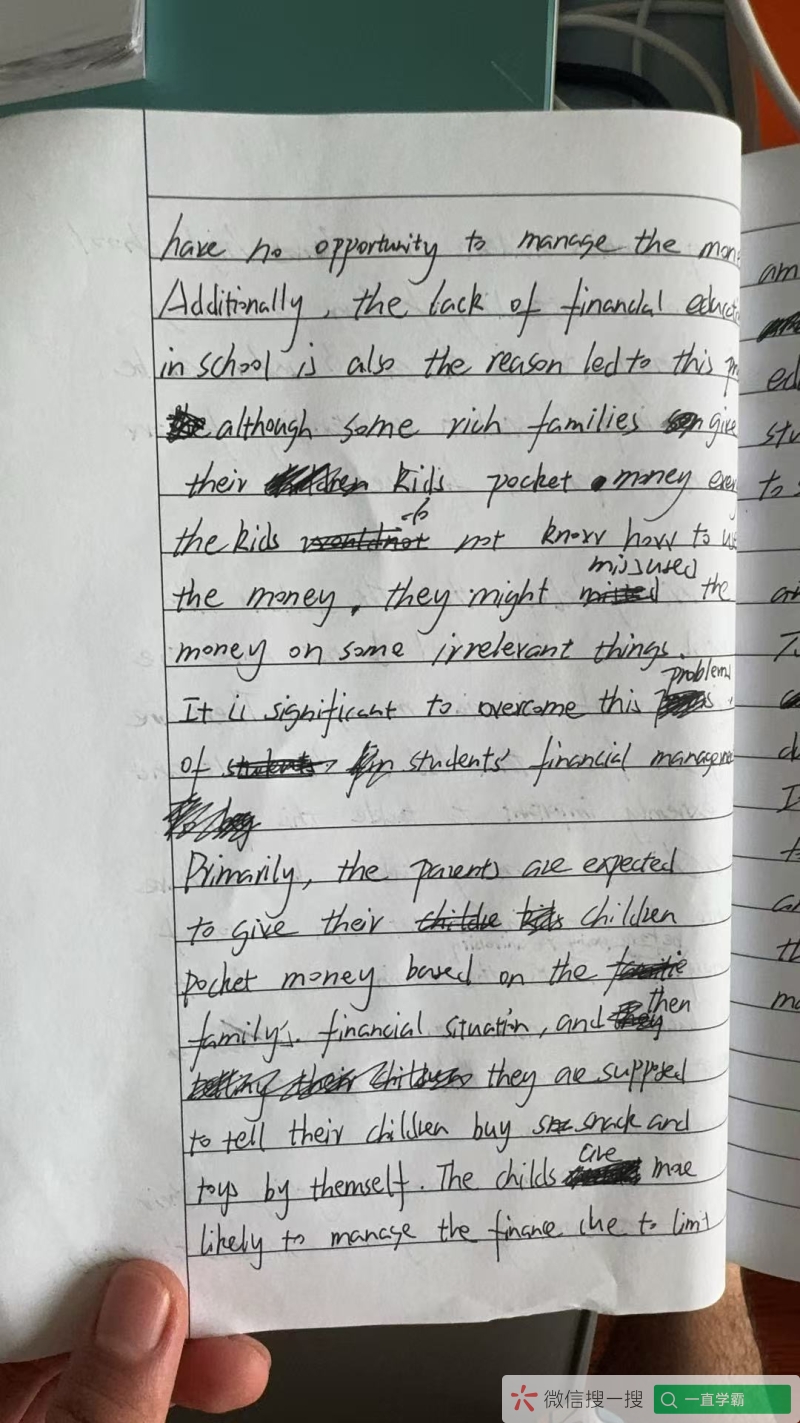 have no opportunity to manage the mon
Additionally, the lack of financial educati
in school is also the reason led to this pr
although some rich families give
their kids pocket money even
the kids do not know how to us
the money, they might missused the
money on some irrelevant things.
It is significant to overcome this problem
of students' financial manageme
Primarily, the parents are expected
to give their children
pocket money based on the
family's financial situation, and then
they are supposed
to tell their children buy snack and
toys by themself. The childs are more
likely to manage the finance due to limit
am
ed
stu
to s
an
I
th
ma
微信搜一搜
一直学霸